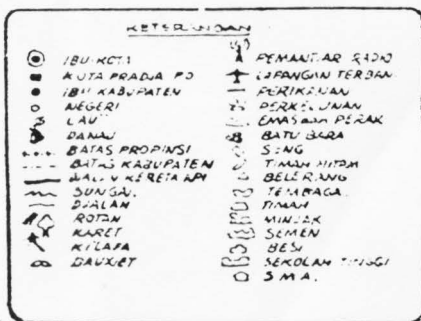 KETERANGAN
IBU-KOTA
KOTA PRADJA
IBU KABUPATEN
NEGERI
LAUT
DANAU
BATAS PROPINSI
BATAS KABUPATEN
DJALAN KERETA API
SUNGAI.
DJALAN
ROTAN
KARET
KELAPA
BAUXIET
PEMANTJAR RADIO
LAPANGAN TERBAN.
PERIKANAN
PERKEBUNAN
EMAS dan PERAK
BATU BARA
SENG
TIMAH HITAM
BELERANG
TEMBAGA.
TIMAH
MINJAK
SEMEN
BESI
SEKOLAH TINGGI
S M A.